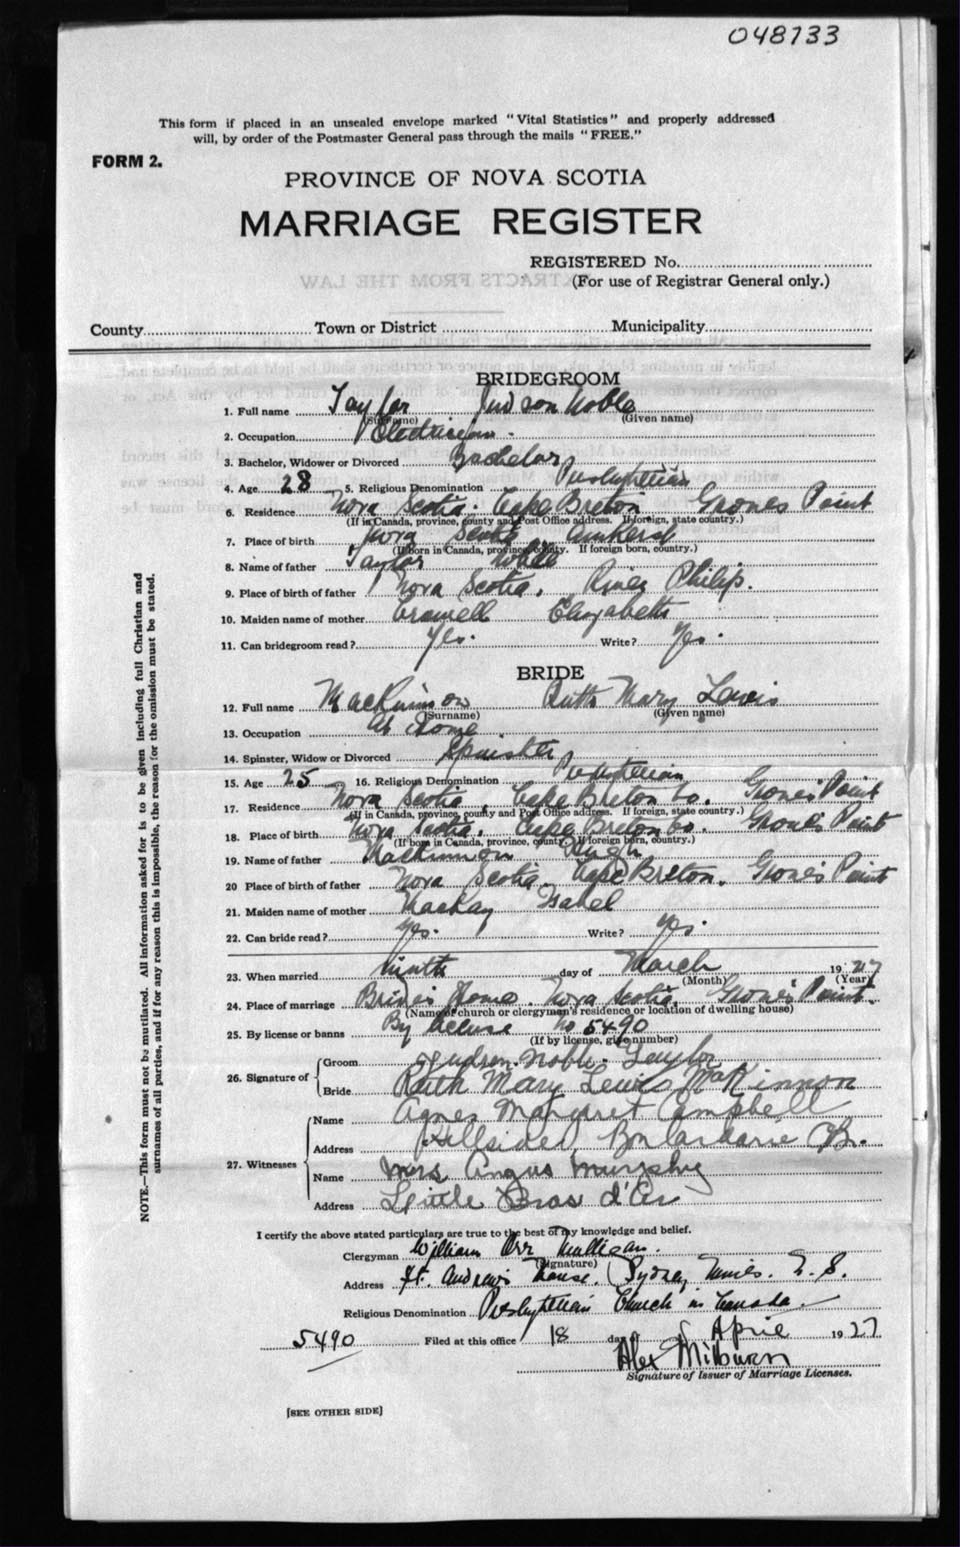 048733
This form if placed in an unsealed envelope marked "Vital Statistics" and properly addressed
will, by order of the Postmaster General pass through the mails "FREE."
FORM 2.
PROVINCE OF NOVA SCOTIA
MARRIAGE REGISTER
REGISTERED No.
(For use of Registrar General only.)
County Town or District Municipality
BRIDEGROOM
1. Full name Taylor Judson Noble
(Surname) (Given name)
2. Occupation Electrician.
3. Bachelor, Widower or Divorced Bachelor
4. Age 28 5. Religious Denomination Presbyterian
6. Residence Nova Scotia. Cape Breton Groves Point
(If in Canada, province, county and Post Office address. If foreign, state country.)
7. Place of birth Nova Scotia Amherst
(If born in Canada, province, county. If foreign born, country.)
8. Name of father Taylor
9. Place of birth of father Nova Scotia. River Philip.
10. Maiden name of mother Elizabeth
11. Can bridegroom read? Yes. Write? Yes.
BRIDE
12. Full name MacKinnon Ruth Mary Lewis
(Surname) (Given name)
13. Occupation At Home
14. Spinster, Widow or Divorced Spinster
15. Age 25 16. Religious Denomination Presbyterian
17. Residence Nova Scotia, Cape Breton Co. Grove's Point
(If in Canada, province, county and Post Office address. If foreign, state country.)
18. Place of birth Nova Scotia. Cape Breton Co. Grove's Point
(If born in Canada, province, county. If foreign born, country.)
19. Name of father MacKinnon Hugh
20 Place of birth of father Nova Scotia Cape Breton. Grove's Point
21. Maiden name of mother MacKay Isabel
22. Can bride read? Yes. Write? Yes.
23. When married ninth day of March 1927
(Month) (Year)
24. Place of marriage Bride's Home. Nova Scotia, Grove's Point.
(Name of church or clergyman's residence or location of dwelling house)
25. By license or banns By license No 5490
(If by license, give number)
26. Signature of
Groom Judson Noble Taylor
Bride Ruth Mary Lewis MacKinnon
27. Witnesses
Name Agnes Margaret Campbell
Address Hillside, Boulardarie C.B.
Name Mrs. Angus Murphy
Address Little Bras d'Or
I certify the above stated particulars are true to the best of my knowledge and belief.
Clergyman William Orr Mulligan.
(Signature)
Address St. Andrew's Manse. Sydney Mines. N.S.
Religious Denomination Presbyterian Church in Canada.
5490 Filed at this office 18 day of April 1927
Alex Milburn
Signature of Issuer of Marriage Licenses.
[SEE OTHER SIDE]
NOTE.—This form must not be mutilated. All information asked for is to be given including full Christian and
surnames of all parties, and if for any reason this is impossible, the reason for the omission must be stated.